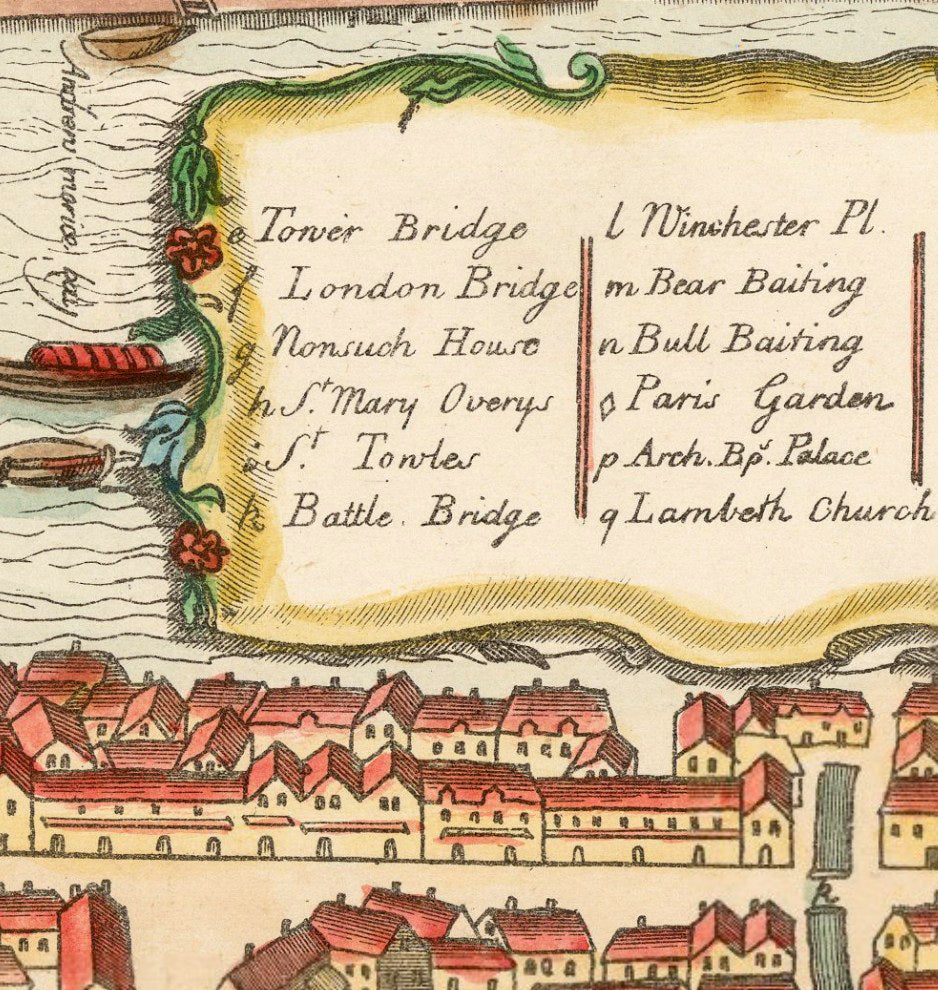 e Tower Bridge
f London Bridge
g Nonsuch House
h S.t Mary Overys
i S.t Towles
k Battle. Bridge
l Winchester Pl.
m Bear Baiting
n Bull Baiting
o Paris Garden
p Arch. Bp.s Palace
q Lambeth Church
Andrew morise key
k